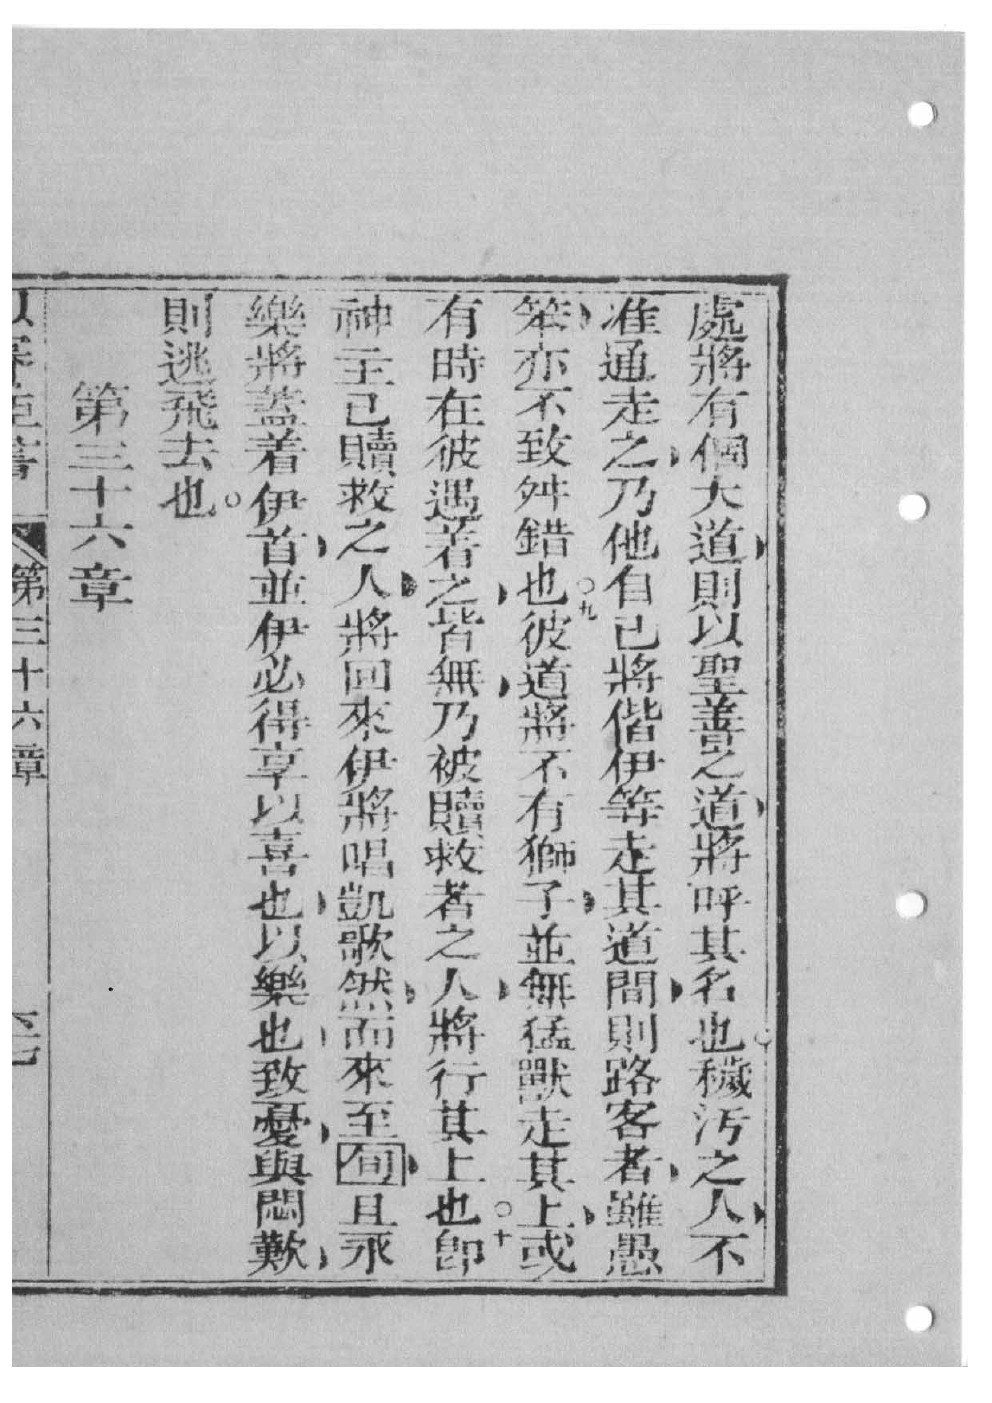 處將有個大道則以聖善之道將呼其名也。穢汚之人不
准通走之乃他自己將偕伊等走其道間則路客者雖愚
笨亦不致舛錯也。九彼道將不有獅子並無猛獸走其上或
有時在彼遇着之皆無乃被贖救者之人將行其上也。十卽
神主已贖救之人將回來伊將唱凱歌然而來至旬且永
樂將蓋着伊首並伊必得享以喜也以樂也致憂與悶歎
則逃飛去也。
第三十六章
第三十六章